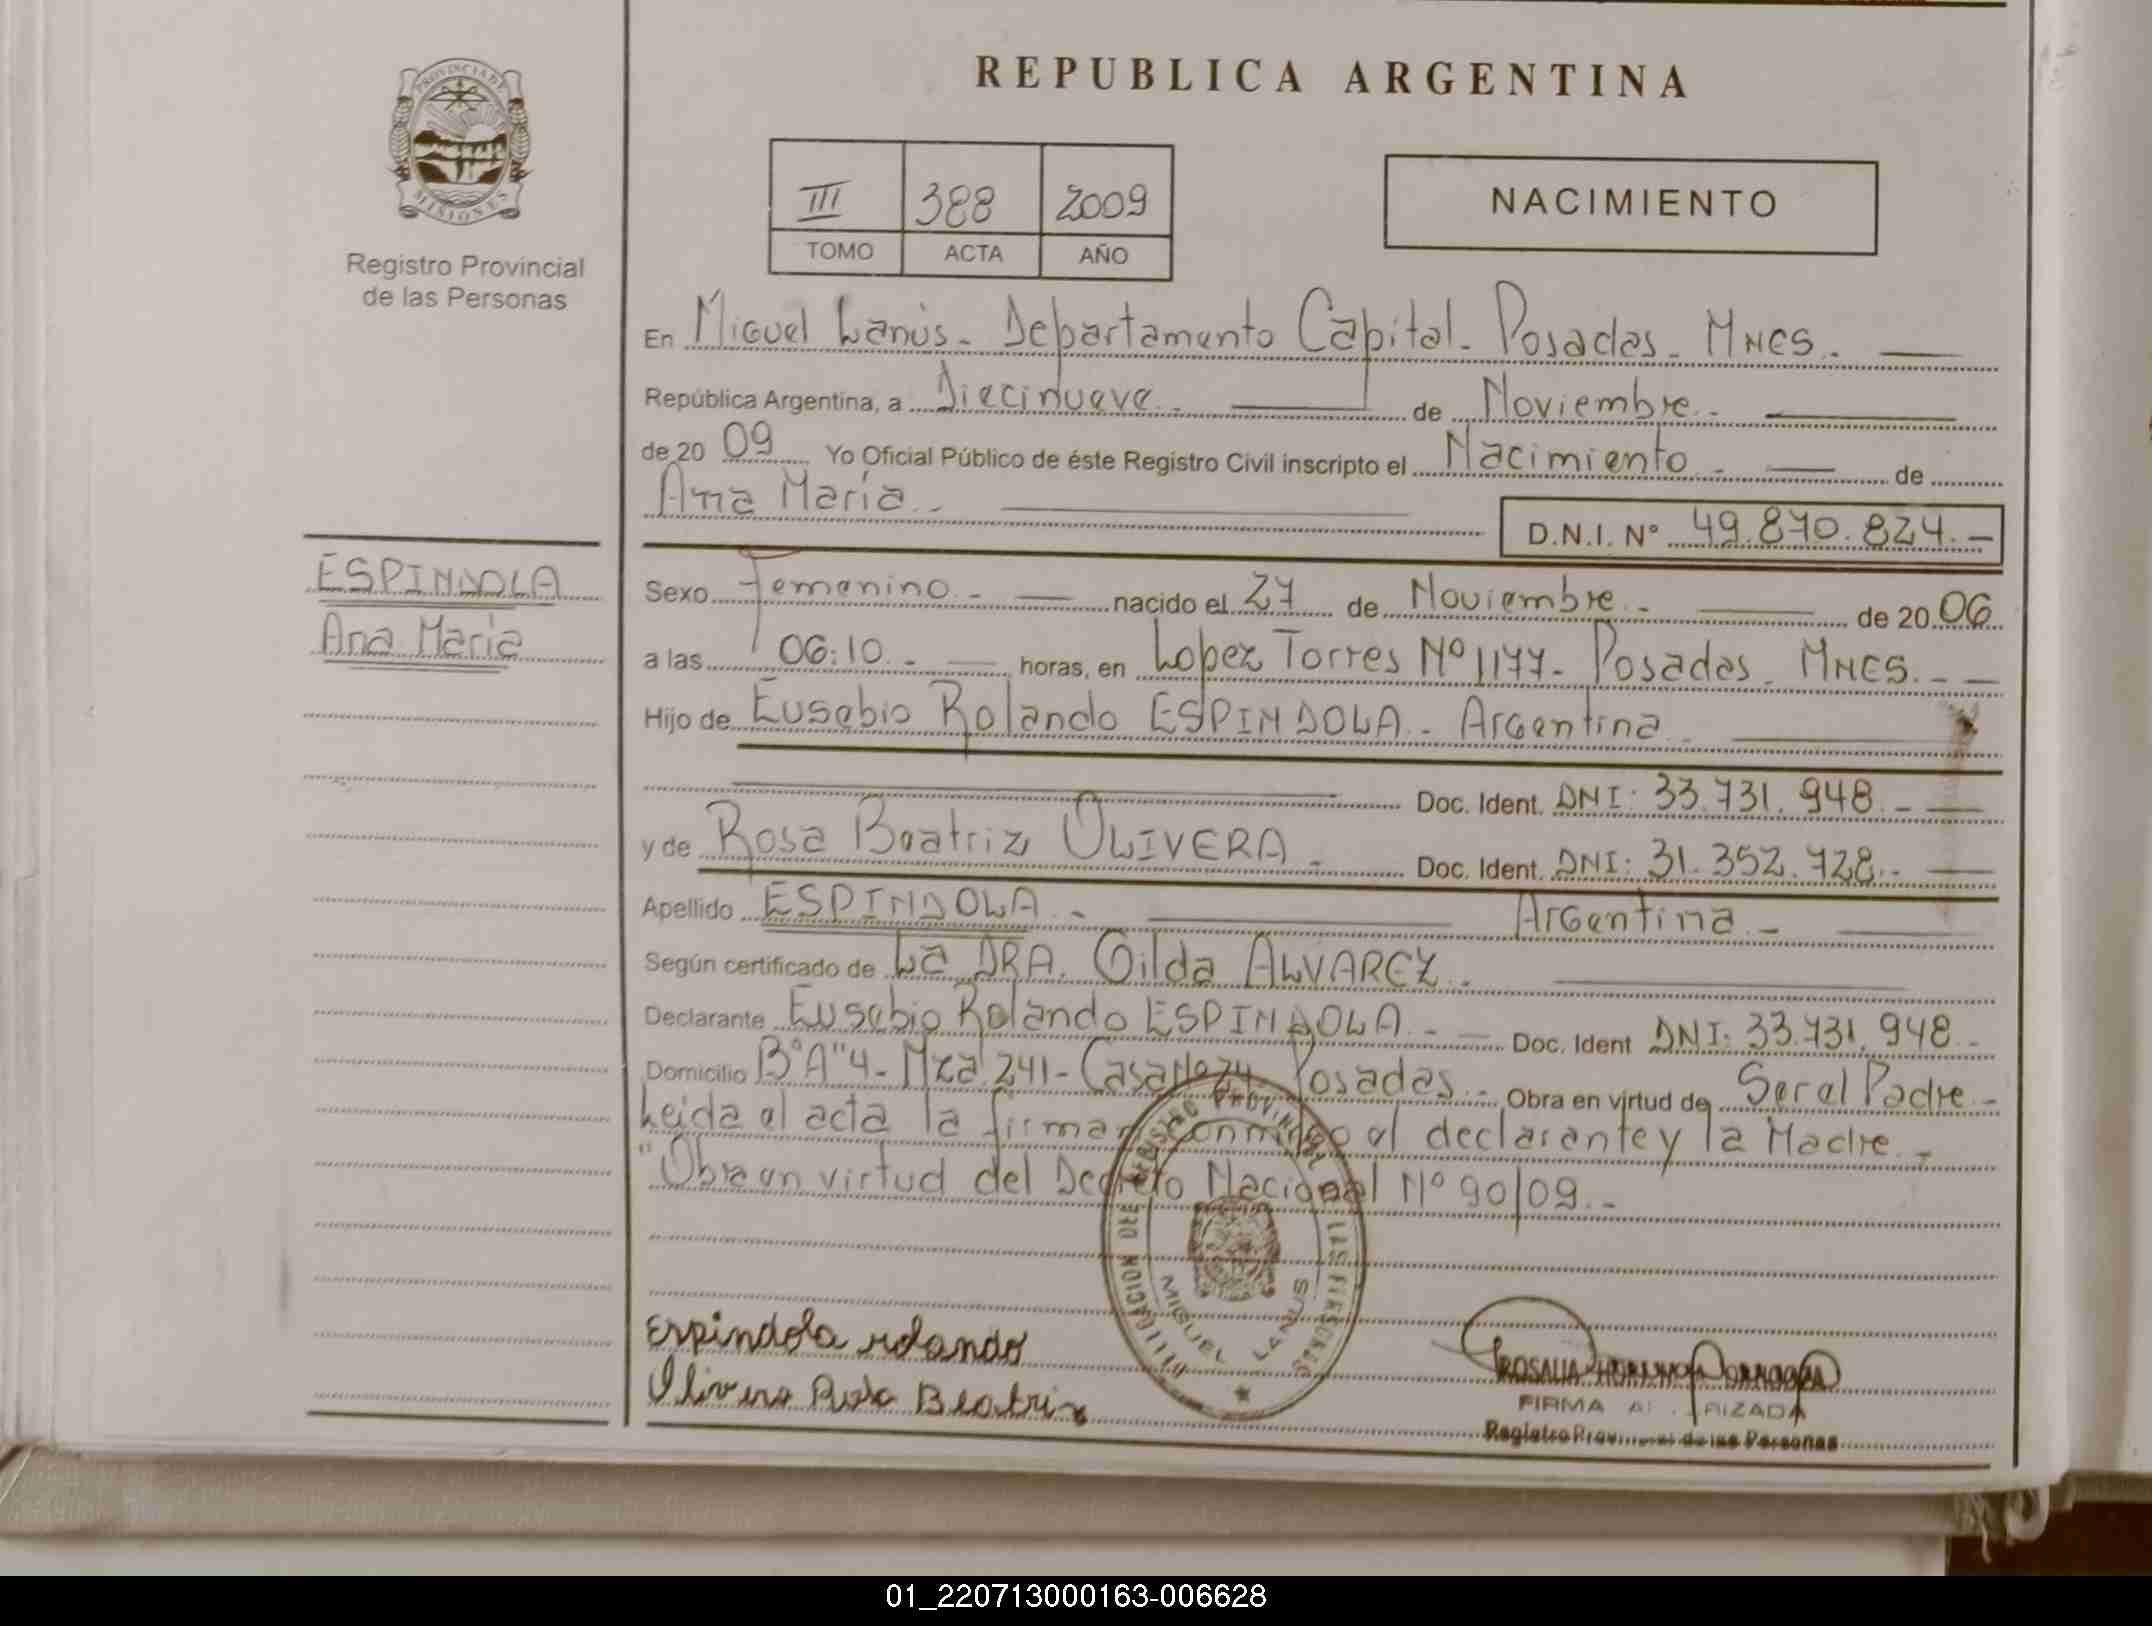 REPUBLICA ARGENTINA
PROVINCIA DE
MISIONES
Registro Provincial
de las Personas
III 388 2009
TOMO ACTA AÑO
NACIMIENTO
En Miguel Lanús - Departamento Capital - Posadas - Mnes. -
República Argentina, a Diecinueve - de Noviembre -
de 20 09 Yo Oficial Público de éste Registro Civil inscripto el Nacimiento - de
Ana María -
D.N.I. N° 49.870.824.-
ESPINDOLA
Ana María
Sexo Femenino - nacido el 27 de Noviembre - de 20 06
a las 06:10. - horas, en Lopez Torres N° 1177 - Posadas - Mnes. -
Hijo de Eusebio Rolando ESPINDOLA - Argentina
Doc. Ident. DNI: 33.731.948 -
y de Rosa Beatriz OLIVERA - Doc. Ident. DNI: 31.352.728 -
Apellido ESPINDOLA - Argentina -
Según certificado de La DRA. Gilda ALVAREZ -
Declarante Eusebio Rolando ESPINDOLA - Doc. Ident DNI: 33.731.948 -
Domicilio B° "A" 4 - Mza 241 - Casa N° 24 - Posadas - Obra en virtud de Ser el Padre -
Leida el acta la firman conmigo el declarante y la Madre -
"Obra en virtud del Decreto Nacional N° 90/09.-
MIGUEL LANUS
Espindola rolando
Olivera Rosa Beatriz
ROSALIA
FIRMA
Registro Provincial de las Personas
01_220713000163-006628